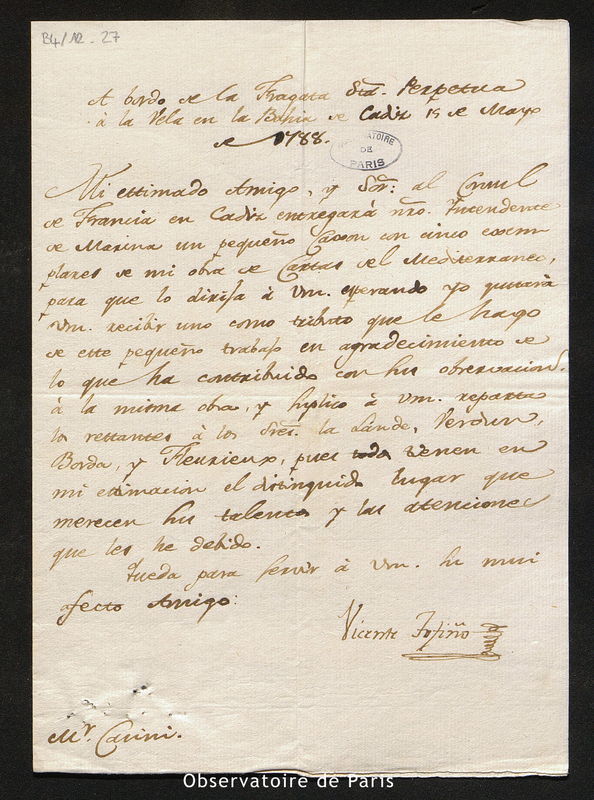 B4/12-27
A bordo de la Fragata Sta. Perpetua
à la Vela en la Bahia de Cadiz 15 de Mayo
de 1788.
OBSERVATOIRE
DE
PARIS
Mi estimado Amigo, y Sor: al Consul
de Francia en Cadiz entregarà nro. Yntendente
de Marina un pequeño Caxon con cinco exem-
plares de mi obra de Cartas del Mediterraneo,
para que lo dirija à Vm. esperando yo gustarà
Vm. recibir uno como tributo que le hago
de este pequeño trabajo en agradecimiento de
lo que ha contribuido con sus observacions.
à la misma obra, y suplico à Vm. reparta
los restantes à los Sres. la Lande, Verdun,
Borda, y Fleurieux, pues todos tienen en
mi estimacion el distinguido lugar que
merecen sus talentos y las atenciones
que les he debido.
Queda para servir à Vm. su mui
afecto Amigo:
Vicente Tofiño
Mr. Casini.
Observatoire de Paris